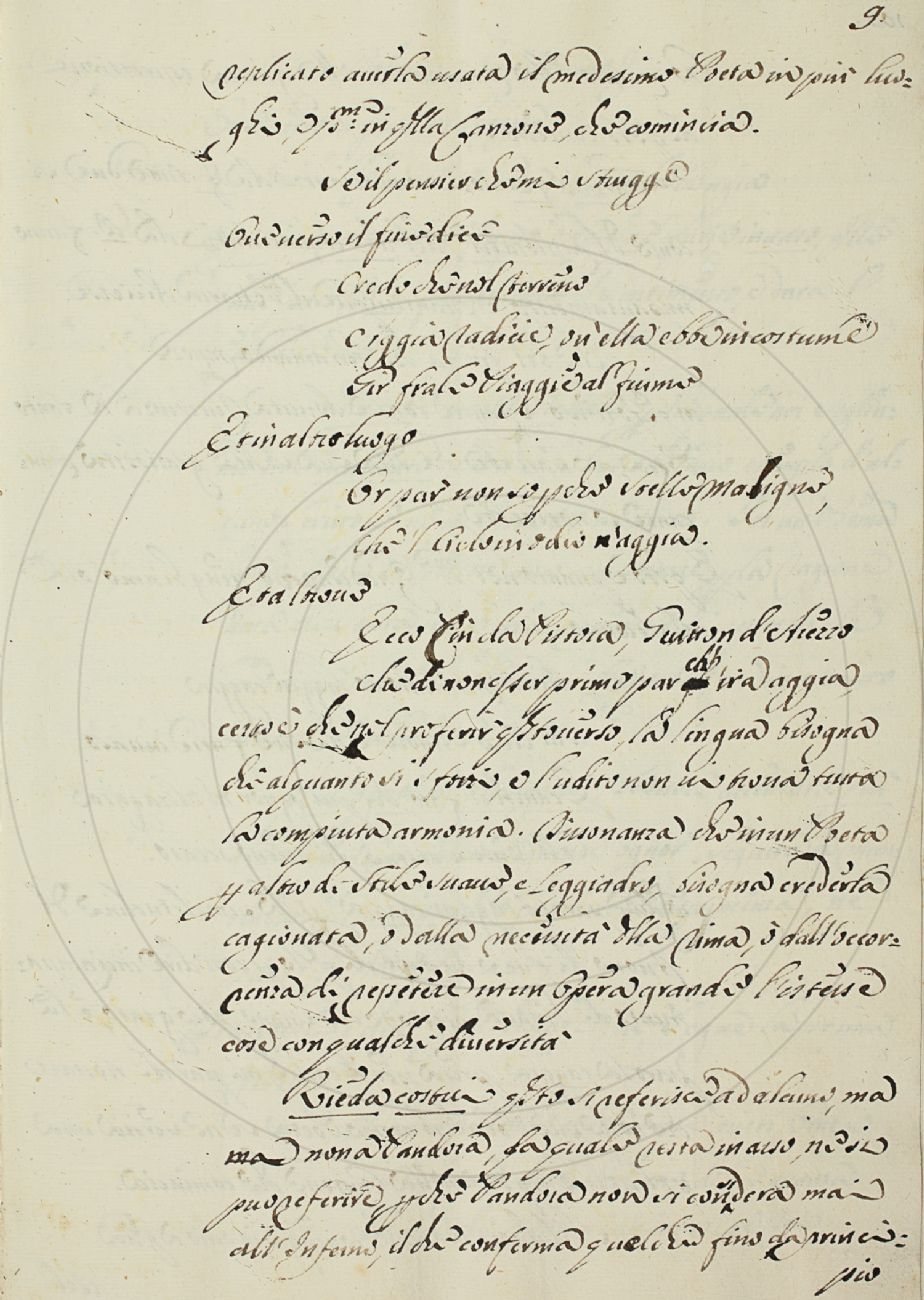 9.
replicato averla usata il medesimo Poeta in più luo=
ghi, e pme in qlla Canzone, che comincia.
Se il pensier che mi strugge
Ove verso il fine dice
Credo che nel terreno
E iggia radicie, ov' ella ebbe in costume
Gir fra le Piaggie al fiume
Et in altro luogo
Or par non so pche stelle maligne,
che 'l Cielo in odio n'aggia.
Et altrove
Ecco Cin da Pistoia, Guitton d'Arezzo
che di non esser primo par ch' ira aggia,
certo è che nel proferir qsto verso, la lingua bisogna
che alquanto si sforzi, e l'udito non vi trova tutta
la compiuta armonia. Dissonanza che in un Poeta
p altro di stile suave, e leggiadro, bisogna crederla
cagionata, ò dalla necessità dlla rima, ò dall'occor=
renza di repetere in un Opera grande l'istesse
cose con qualche diversità
Rieda costui qsto si referisce ad alcuno, ma
ma non a Pandora, la quale resta in aso, ne si
puo referire, pche Pandora non si condera mai
all' Inferno, il che conferma quel che fino da princi=
pio